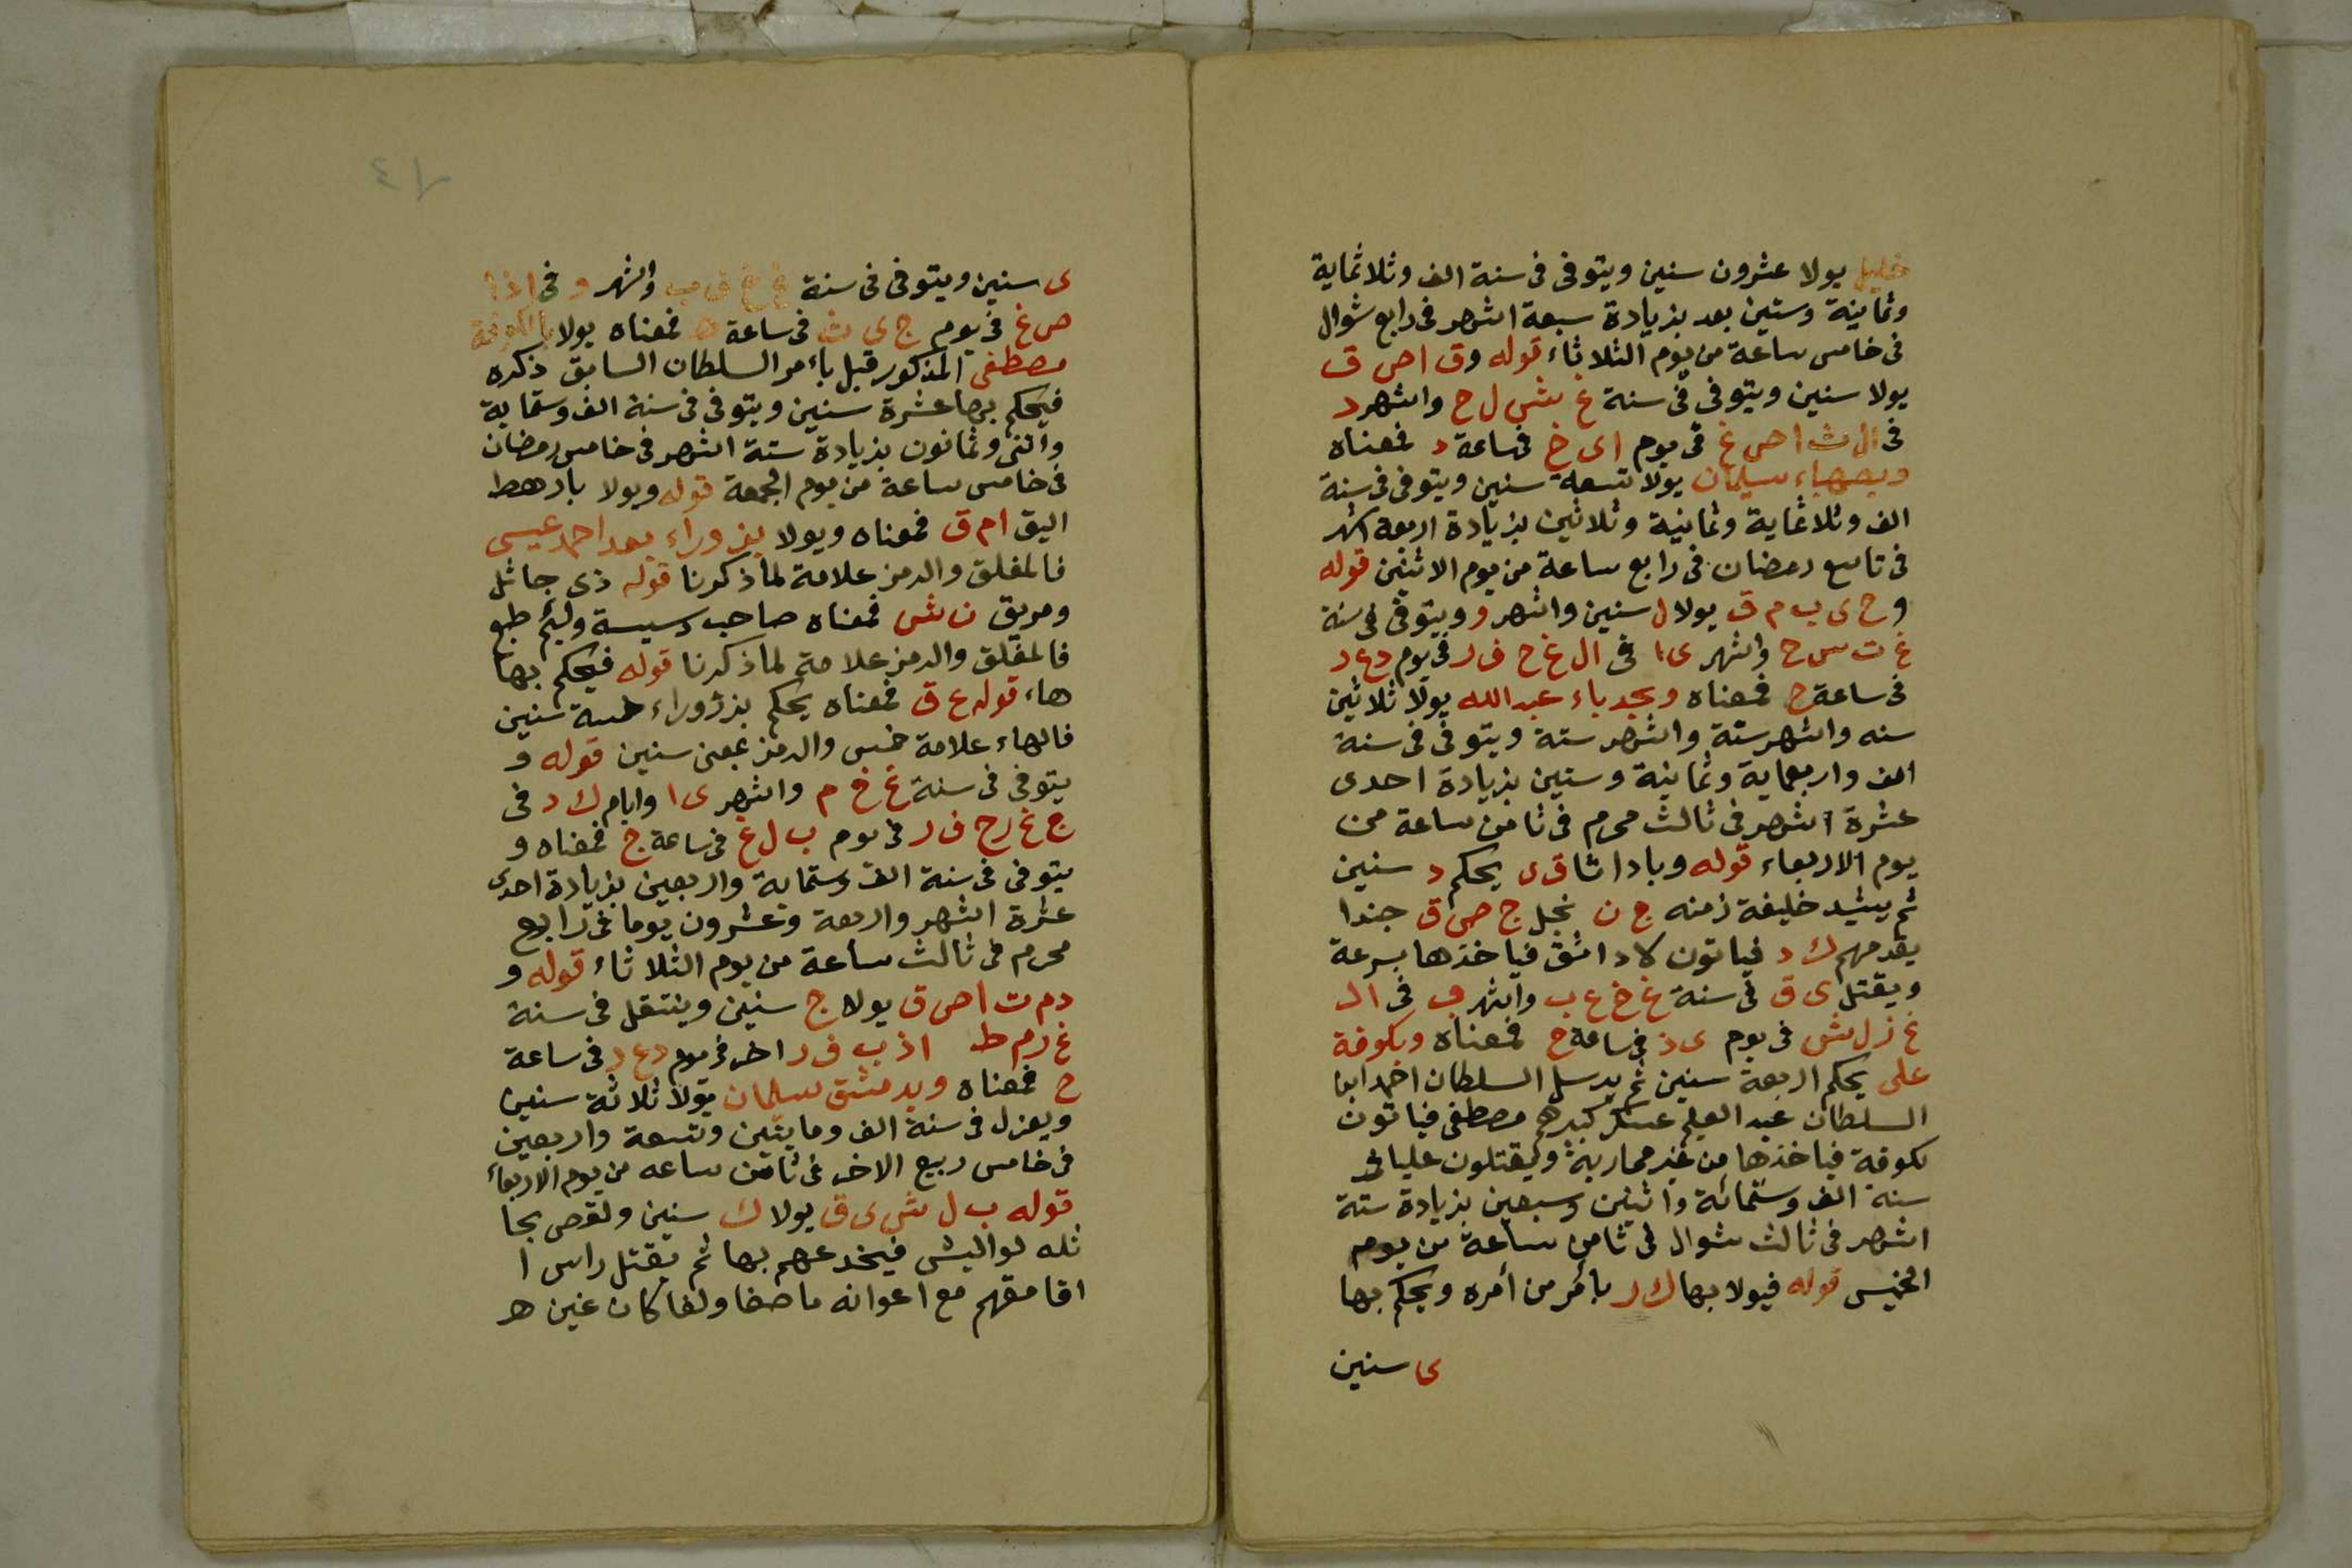 خليل يولا عشرون سنين ويتوفى فى سنة الف وثلاثماية
وثمانية وستين بعد بزيادة سبعة اشهر فى رابع شوال
فى خامس ساعة من يوم الثلاثاء قوله وق ا ص ق
يولا سنين ويتوفى فى سنة غ ش ل ح واشهر د
فى ال ث ا ص غ فى يوم ا ى خ فى ساعة د فمعناه
سليمان يولا تسعة سنين ويتوفى فى سنة
الف وثلاثماية وثمانية وثلاثين بزيادة اربعة اشهر
فى تاسع رمضان فى رابع ساعة من يوم الاثنين قوله
وح ى ب م ق يولا ل سنين واشهر و ويتوفى فى سنة
غ ت س ح واشهر ى ا فى ال غ ح ف ر فى يوم د ع د
فى ساعة ح فمعناه وبحدباء عبد الله يولا ثلاثين
سنه واشهر ستة واشهر ستة ويتوفى فى سنة
الف واربعماية وثمانية وستين بزيادة احدى
عشرة اشهر فى ثالث محرم فى ثامن ساعة من
يوم الاربعاء قوله وباداشا ق ى يحكم د سنين
ثم يشيد خليفة زمنه ج ن نجل ج ص ق جندا
يقدمهم ك د فياتون لاداشق فياخذها بسرعة
ويقتل ى ق فى سنة غ خ ع ب واشهر ب فى ال
غ ز ل ش فى يوم ى ذ فى ساعة ح فمعناه وبكوفة
على يحكم اربعة سنين ثم يرسل السلطان احمد ابن
السلطان عبد العليم عسكر كبيرهم مصطفى فياتون
لكوفة فياخذها من غير محاربة ويقتلون عليا فى
سنة الف وستمائة واثنين وسبعين بزيادة ستة
اشهر فى ثالث شوال فى ثامن ساعة من يوم
الخميس قوله فيولا بها ك ر بأمر من أمره ويحكم بها
ى سنين
ى سنين ويتوفى فى سنة غ خ ف ب واشهر و فى اذا
ص غ فى يوم ج ى ث فى ساعة ه فمعناه يولا بالكوفة
مصطفى المذكور قبل باءمر السلطان السابق ذكره
فيحكم بها عشرة سنين ويتوفى فى سنة الف وستماية
واثنى وثمانون بزيادة ستة اشهر فى خامس رمضان
فى خامس ساعة من يوم الجمعة قوله ويولا بادهط
اليق ام ق فمعناه ويولا بزوراء بعد احمد عيسى
فالمغلق والرمز علامة لما ذكرنا قوله ذى جاثل
ومريق ن ش فمعناه صاحب دسيسة ولئيم طبع
فالمغلق والرمز علامة لما ذكرنا قوله فيحكم بها
هاء قوله ع ق فمعناه يحكم بزوراء خمسة سنين
فالهاء علامة خمس والرمز بمعنى سنين قوله و
يتوفى فى سنة غ خ م واشهر ى ا وايام ك د فى
ج غ رح ف ر فى يوم ب ل غ فى ساعة ج فمعناه و
يتوفى فى سنة الف وستماية واربعين بزيادة احدى
عشرة اشهر واربعة وعشرون يوما فى رابع
محرم فى ثالث ساعة من يوم الثلاثاء قوله و
دم ت ا ص ق يولا ج سنين وينتقل فى سنة
غ ر م ط اذ ب ف ر اخر فى يوم د ع د فى ساعة
ح فمعناه وبدمشق سليمان يولا ثلاثة سنين
ويعزل فى سنة الف ومايتين وتسعة واربعين
فى خامس ربيع الاخر فى ثامن ساعه من يوم الاربعاء
قوله ب ل ش ى ق يولا ك سنين ولقص بجا
ثله لواليش فيخدعهم بها ثم يقتل راس ا
اقامقهم مع اعوانه ما صفا ولفا كان عنين هر